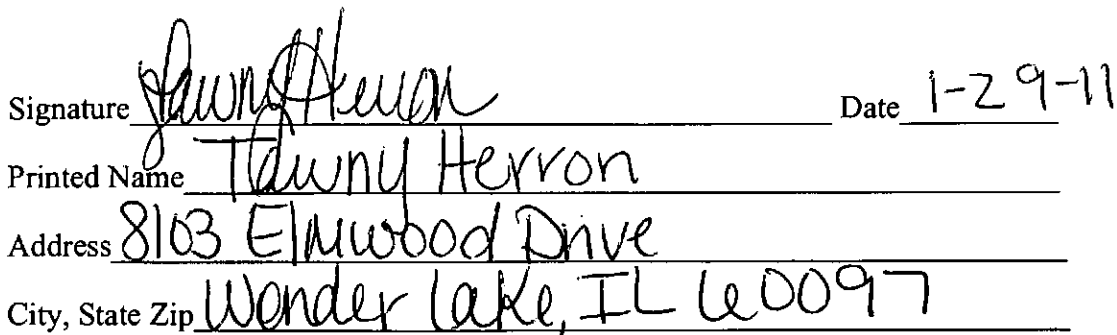 Signature Tawny Herron Date 1-29-11
Printed Name Tawny Herron
Address 8103 Elmwood Drive
City, State Zip Wonder Lake, IL 60097